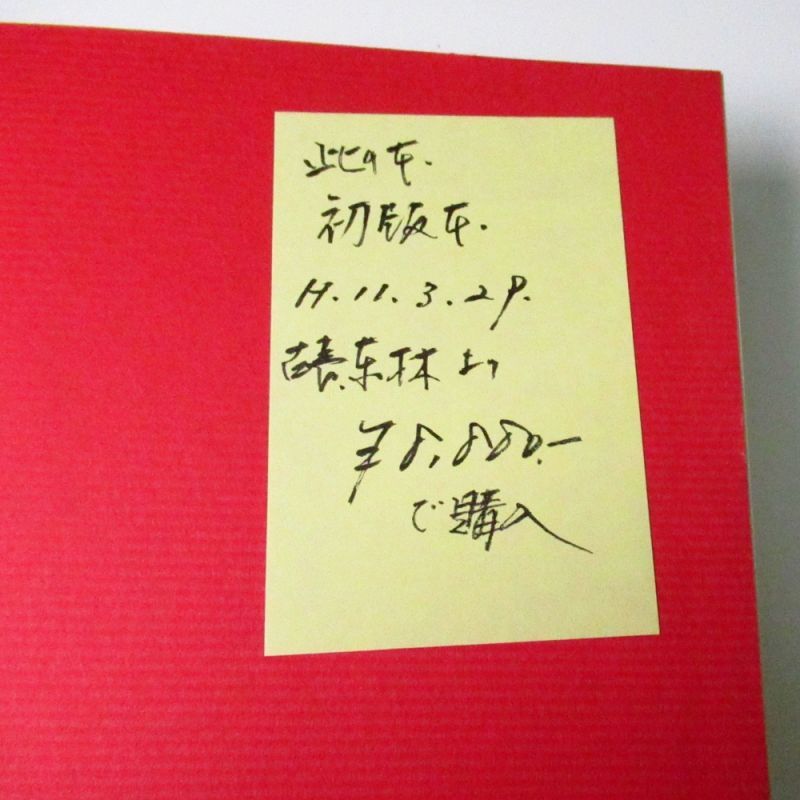 此の本.
初版本.
H.11.3.29.
林より
¥8,880.-
で購入